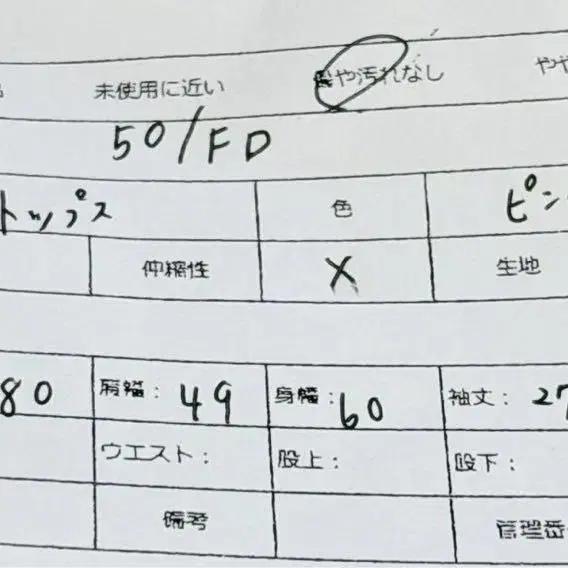 未使用に近い 傷や汚れなし やや
50/FD
トップス 色 ピン
伸縮性 X 生地
80 肩幅： 49 身幅： 60 袖丈： 27
ウエスト： 股上： 股下：
備考 管理番